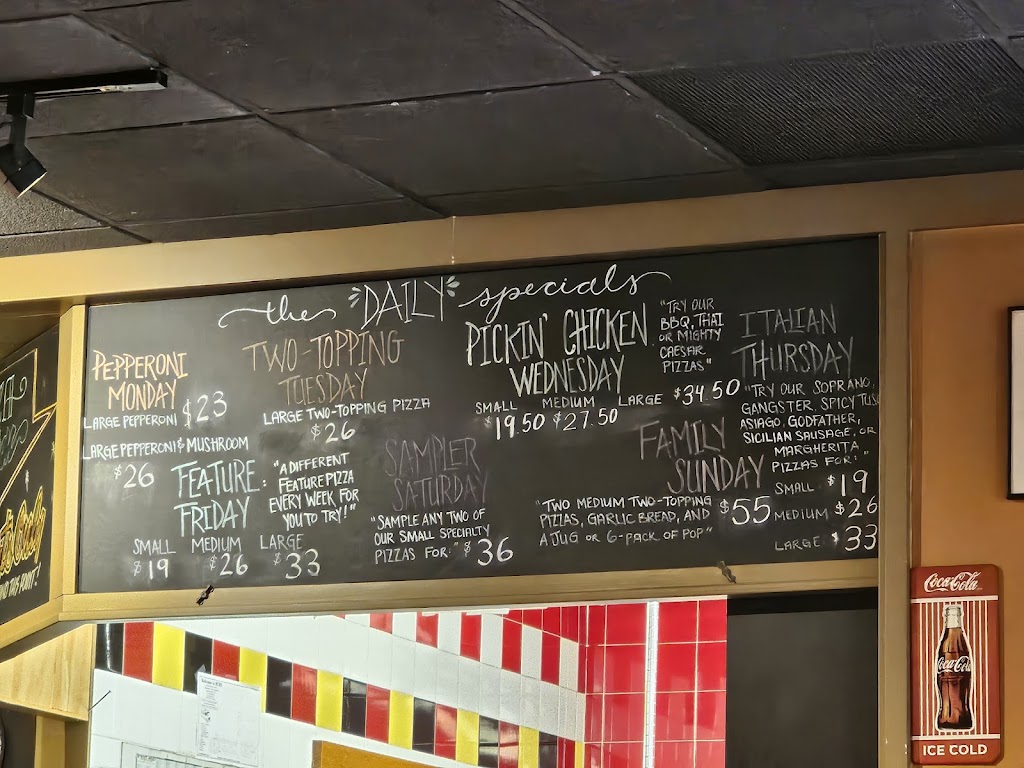 the DAILY specials
PEPPERONI
MONDAY
LARGE PEPPERONI $23
LARGE PEPPERONI & MUSHROOM
$26
TWO-TOPPING
TUESDAY
LARGE TWO-TOPPING PIZZA
$26
PICKIN' CHICKEN
WEDNESDAY
"TRY OUR
BBQ, THAI
OR MIGHTY
CAESAR
PIZZAS."
SMALL MEDIUM LARGE
$19.50 $27.50 $34.50
ITALIAN
THURSDAY
"TRY OUR SOPRANO,
GANGSTER, SPICY
ASIAGO, GODFATHER,
SICILIAN SAUSAGE, OR
MARGHERITA
PIZZAS FOR:"
SMALL $19
MEDIUM $26
LARGE $33
FEATURE
FRIDAY
: "A DIFFERENT
FEATURE PIZZA
EVERY WEEK FOR
YOU TO TRY!"
SMALL MEDIUM LARGE
$19 $26 $33
SAMPLER
SATURDAY
"SAMPLE ANY TWO OF
OUR SMALL SPECIALTY
PIZZAS FOR:" $36
FAMILY
SUNDAY
"TWO MEDIUM TWO-TOPPING
PIZZAS, GARLIC BREAD, AND
A JUG OR 6-PACK OF POP"
$55
Coca-Cola
Coca-Cola
ICE COLD